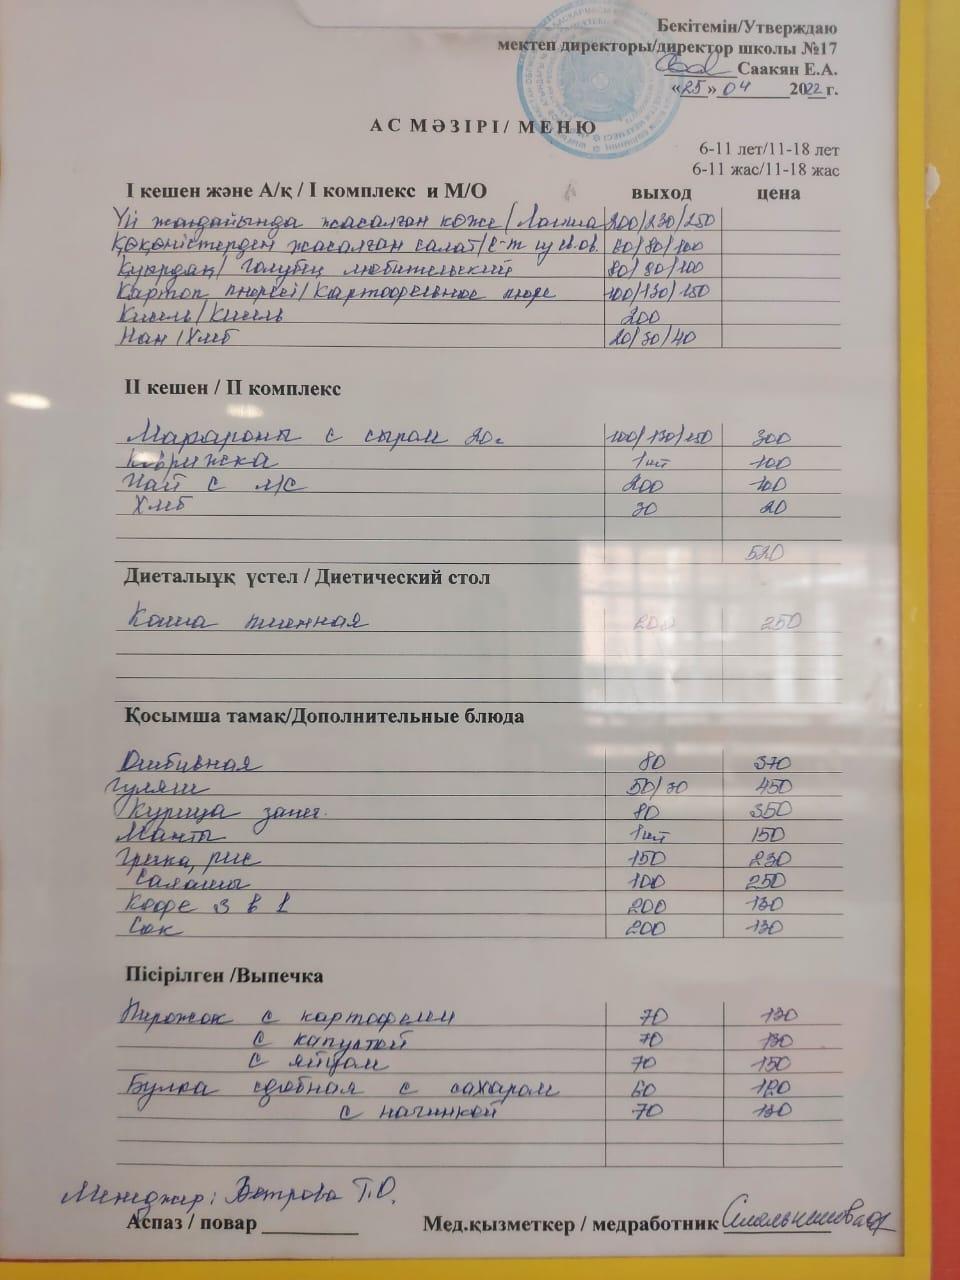 Бекітемін/Утверждаю
мектеп директоры/директор школы №17
Саакян Е.А.
«25» 04 2022 г.
АС МӘЗІРІ/ МЕНЮ
6-11 лет/11-18 лет
6-11 жас/11-18 жас
І кешен және А/қ / І комплекс и М/О выход цена
Үй жағдайында жасалған көже/Лапша 200/230/250
Көкөністерден жасалған салат/с-т из св.ов. 60/80/100
Қуырдақ/ Голубец любительский 80/90/100
Картоп пюресі/Картофельное пюре 100/130/150
Кисель/Кисель 200
Нан/Хлеб 20/30/40
ІІ кешен / ІІ комплекс
Макароны с сыром 20г 100/130/150 300
Коврижка 1шт 100
Чай с м/с 200 100
Хлеб 30 20
520
Диеталыұқ үстел / Диетический стол
Каша пшенная 200 250
Қосымша тамак/Дополнительные блюда
Отбивная 80 370
Гуляш 50/30 450
Курица запеч. 80 350
Манты 1шт 150
Гречка, рис 150 230
Салаты 100 250
Кофе 3 в 1 200 130
Сок 200 130
Пісірілген /Выпечка
Пирожок с картофелем 70 130
с капустой 70 130
с яйцом 70 150
Булка сдобная с сахаром 60 120
с начинкой 70 130
Менеджер: Ветрова Т.О.
Аспаз / повар Мед.қызметкер / медработник